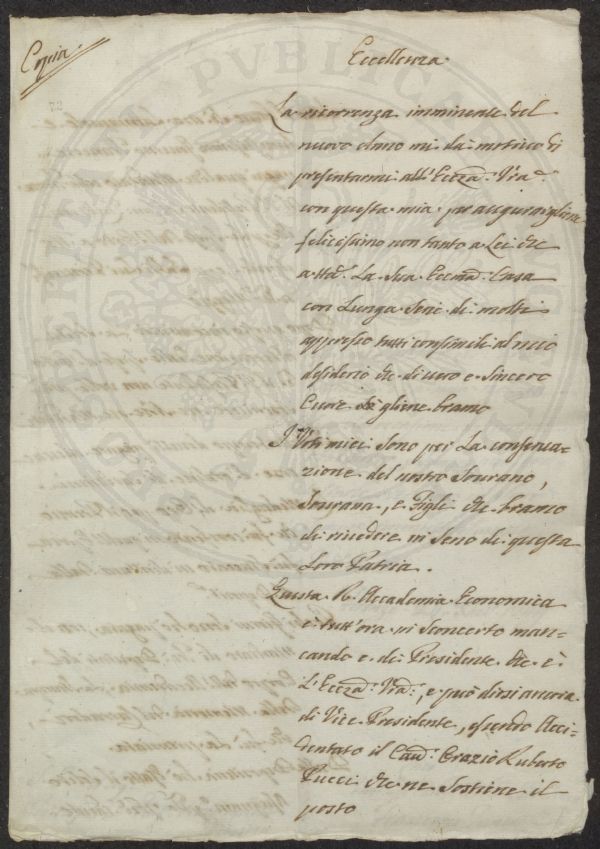 Copia
Eccellenza
La ricorrenza imminente del
nuovo Anno mi da motivo di
presentarmi all'Eccza. Vra.
con questa mia per augurargliene
felicissimo non tanto a Lei che
a tta. La Sua Eccma. Casa
con Lunga Serie di molti
appresso tutti consimili al mio
desiderio che di vero e Sincero
Cuore gliene bramo
I Voti miei Sono per La conserva-
zione del nostro Sourano,
Sourana, e Figli che bramo
di rivedere in Seno di questa
Loro Patria.
Questa R. Accademia Economica
è tutt'ora in Sconcerto man-
cando e di Presidente che è
L'Eccza. Vra., e può dirsi ancora
di Vice Presidente, essendo Acci-
dentato il Cav. Orazio Ruberto
Pucci che ne Sostiene il
posto